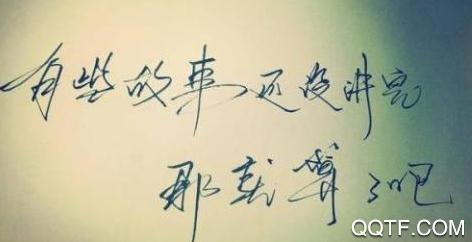 有些故事还没讲完
那就算了吧
QQTF.COM